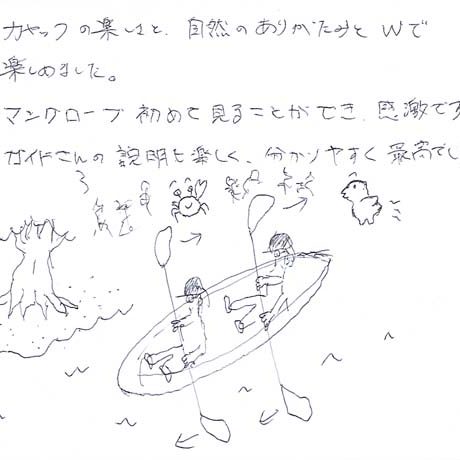 カヤックの楽しさと、自然のありがたみと Wで
楽しめました。
マングローブ初めて見ることができ、感激です
ガイドさんの説明も楽しく、分かりやすく最高でし